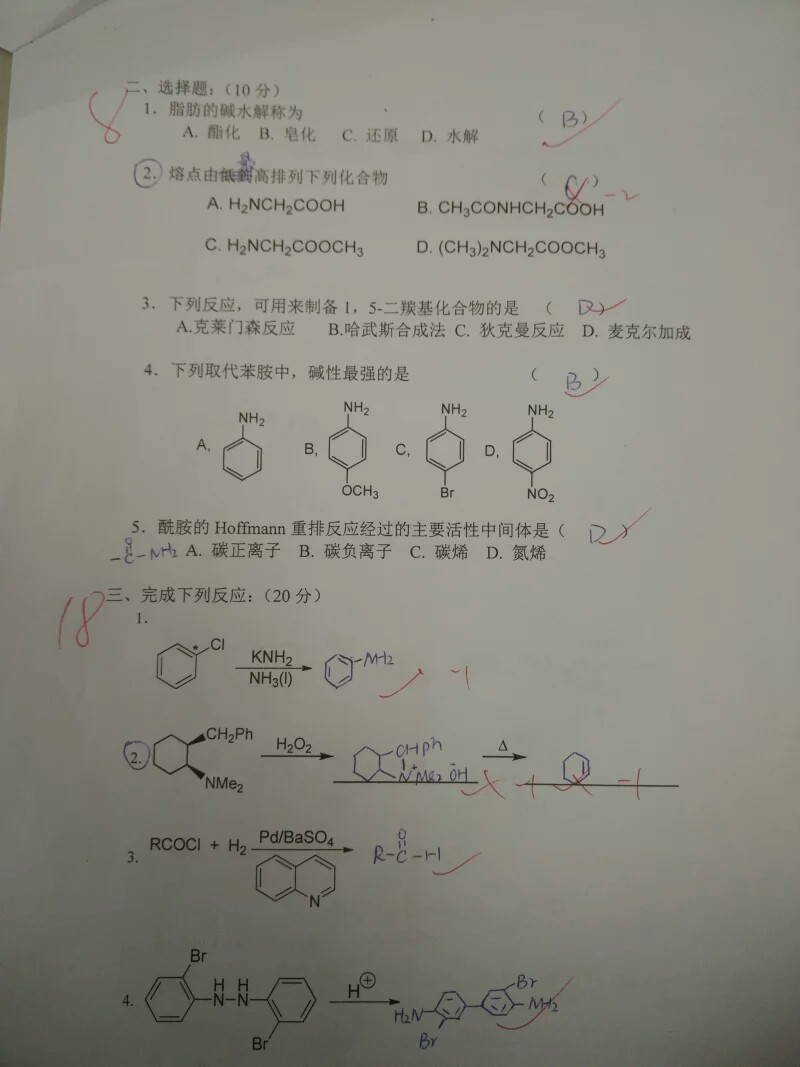 二、选择题：（10 分）
8
1. 脂肪的碱水解称为 （ B ）
A. 酯化 B. 皂化 C. 还原 D. 水解
2. 熔点由 高排列下列化合物 （ C ） -2
A. H₂NCH₂COOH B. CH₃CONHCH₂COOH
C. H₂NCH₂COOCH₃ D. (CH₃)₂NCH₂COOCH₃
3. 下列反应，可用来制备 1，5-二羰基化合物的是 （ D ）
A.克莱门森反应 B.哈武斯合成法 C. 狄克曼反应 D. 麦克尔加成
4. 下列取代苯胺中，碱性最强的是 （ B ）
A, NH₂ B, NH₂ C, NH₂ D, NH₂
OCH₃ Br NO₂
5. 酰胺的 Hoffmann 重排反应经过的主要活性中间体是（ D ）
O
-C-NH₂ A. 碳正离子 B. 碳负离子 C. 碳烯 D. 氮烯
18 三、完成下列反应：（20 分）
1.
* Cl KNH₂ NH₂
NH₃(l) -1
2. CH₂Ph H₂O₂ CHPh Δ
NMe₂ N⁺Me₂ ŌH -1 -1
3. RCOCl + H₂ Pd/BaSO₄ O
R-C-H
N
4. Br H H H⊕ Br
N N H₂N NH₂
Br Br